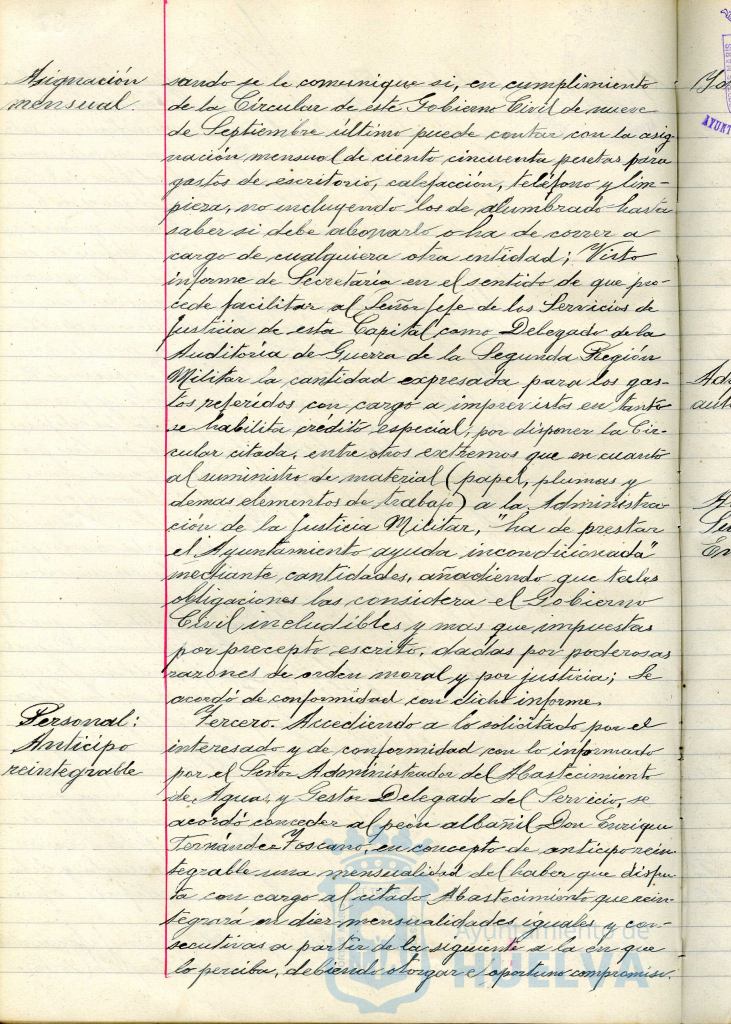 Asignación
mensual.
sando se le comunique si, en cumplimiento
de la Circular de este Gobierno Civil de nueve
de Septiembre último puede contar con la asig-
nación mensual de ciento cincuenta pesetas para
gastos de escritorio, calefacción, teléfono y lim-
pieza, no incluyendo los de alumbrado hasta
saber si debe abonarlo o ha de correr a
cargo de cualquiera otra entidad; Visto
informe de Secretaría en el sentido de que pro-
cede facilitar al Señor Jefe de los Servicios de
Justicia de esta Capital como Delegado de la
Auditoría de Guerra de la Segunda Región
Militar la cantidad expresada para los gas-
tos referidos con cargo a imprevistos en tanto
se habilita crédito especial, por disponer la Cir-
cular citada, entre otros extremos que en cuanto
al suministro de material (papel, plumas y
demas elementos de trabajo) a la Administra-
ción de la Justicia Militar, "ha de prestar
el Ayuntamiento ayuda incondicionada"
mediante cantidades, añadiendo que tales
obligaciones las considera el Gobierno
Civil includibles y mas que impuestas
por precepto escrito, dadas por poderosas
razones de orden moral y por justicia; Se
acordó de conformidad con dicho informe.
Personal:
Anticipo
reintegrable
Tercero. Accediendo a lo solicitado por el
interesado y de conformidad con lo informado
por el Señor Administrador del Abastecimiento
de Aguas y Gestor Delegado del Servicio, se
acordó conceder al peón albañil Don Enrique
Fernández Toscano, en concepto de anticipo rein-
tegrable una mensualidad del haber que disfru-
ta con cargo al citado Abastecimiento que rein-
tegrará en diez mensualidades iguales y con-
secutivas a partir de la siguiente a la en que
lo perciba, debiendo otorgar el oportuno compromiso.
Ayuntamiento de
HUELVA